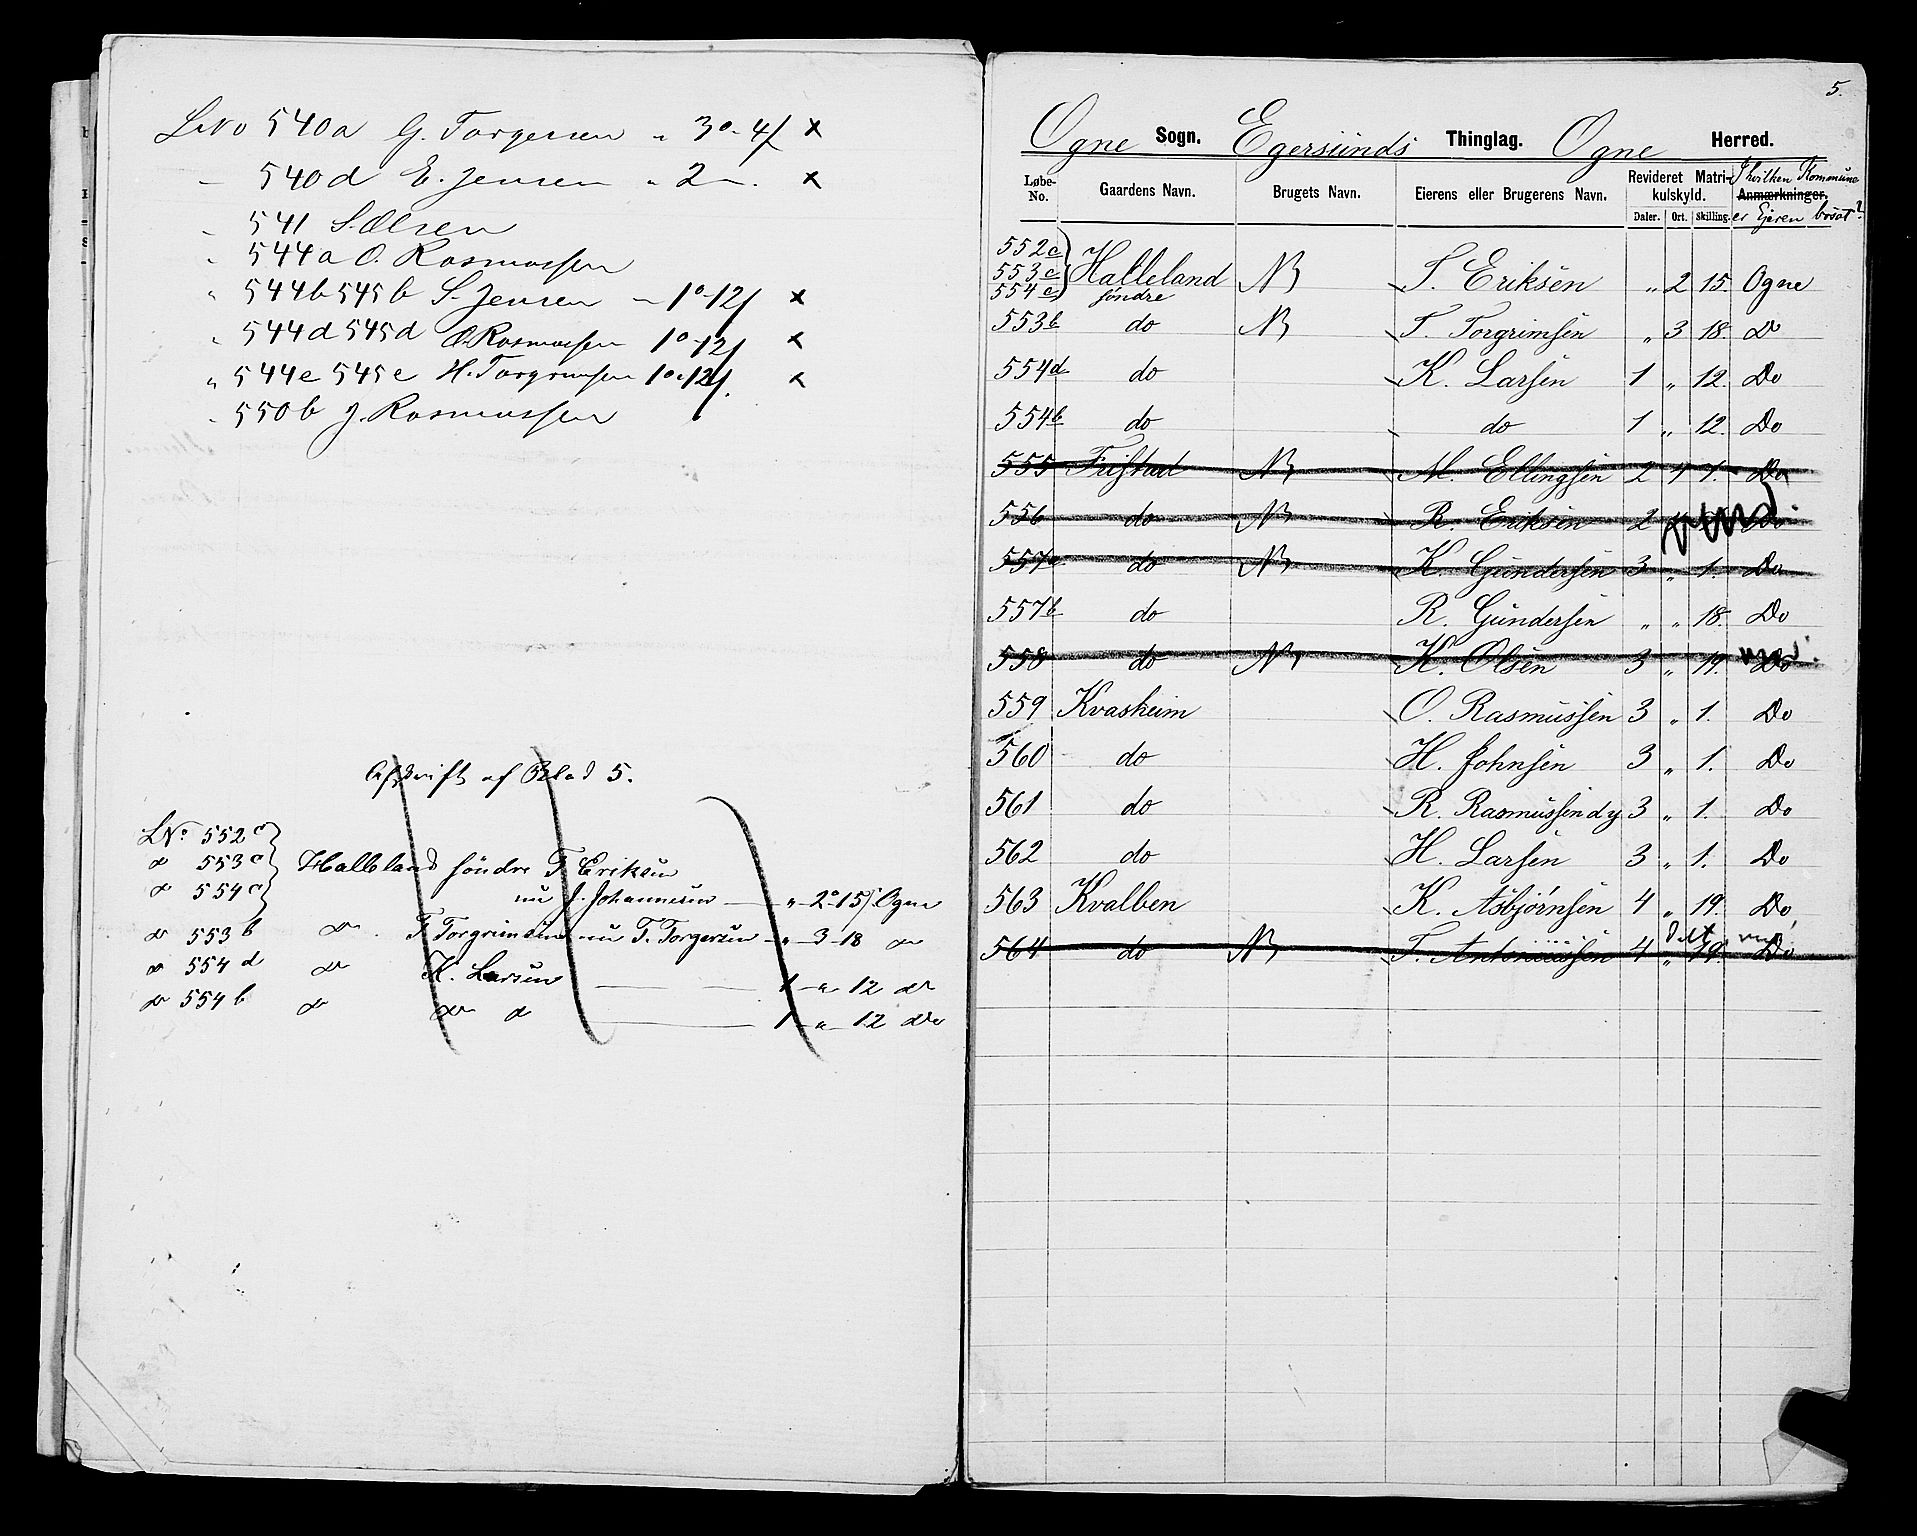 LNo 540a G. Torgersen " 3o- 4/ x
540d E. Jensen " 2 — x
541 S. Olsen
" 544a O. Rasmussen
" 544b 545b S. Jensen — 1o-12/ x
" 544d 545d O. Rasmussen 1o-12/ x
" 544e 545e H. Torgrimsen 1o-12/ x
550b J. Rasmussen
Afskrift af Blad 5.
LNo 552c
do 553c Halleland söndre T. Eriksen
do 554c nu J. Johannesen — " 2o-15/ Ogne
do 553b do. T. Torgrimsen nu T. Torgersen — " 3-18 do
do 554d do K. Larsen — 1 — " 12 do
do 554b do do d — 1 — " 12 do
5.
Ogne Sogn. Egersunds Thinglag. Ogne Herred.
Løbe-No. Gaardens Navn. Brugets Navn. Eierens eller Brugerens Navn. Revideret Matrikulskyld. Daler. Ort. Skilling. Anmærkninger. I hvilken Kommune er Ejeren bosat?
552c
553c Halleland N T. Eriksen " 2 15. Ogne
554c söndre
553b do N T. Torgrimsen " 3 18. Do
554d do K. Larsen 1 " 12. Do
554b do do 1 " 12. Do
555 Fristad N M. Ellingsen 2 4 7. Do
556 do N R. Eriksen 2 Do
557a do N K. Gundersen 3 " 1. Do
557b do R. Gundersen " " 18. Do
558 do N K. Olsen 3 " 19. Do
559 Kvasheim O. Rasmussen 3 " 1. Do
560 do H. Johnsen 3 " 1. Do
561 do R. Rasmussen d y 3 " 1. Do
562 do H. Larsen 3 " 1. Do
563 Kvalben K. Asbjörnsen 4 " 19. Do
564 do N T. Antoniussen 4 " 19. Do